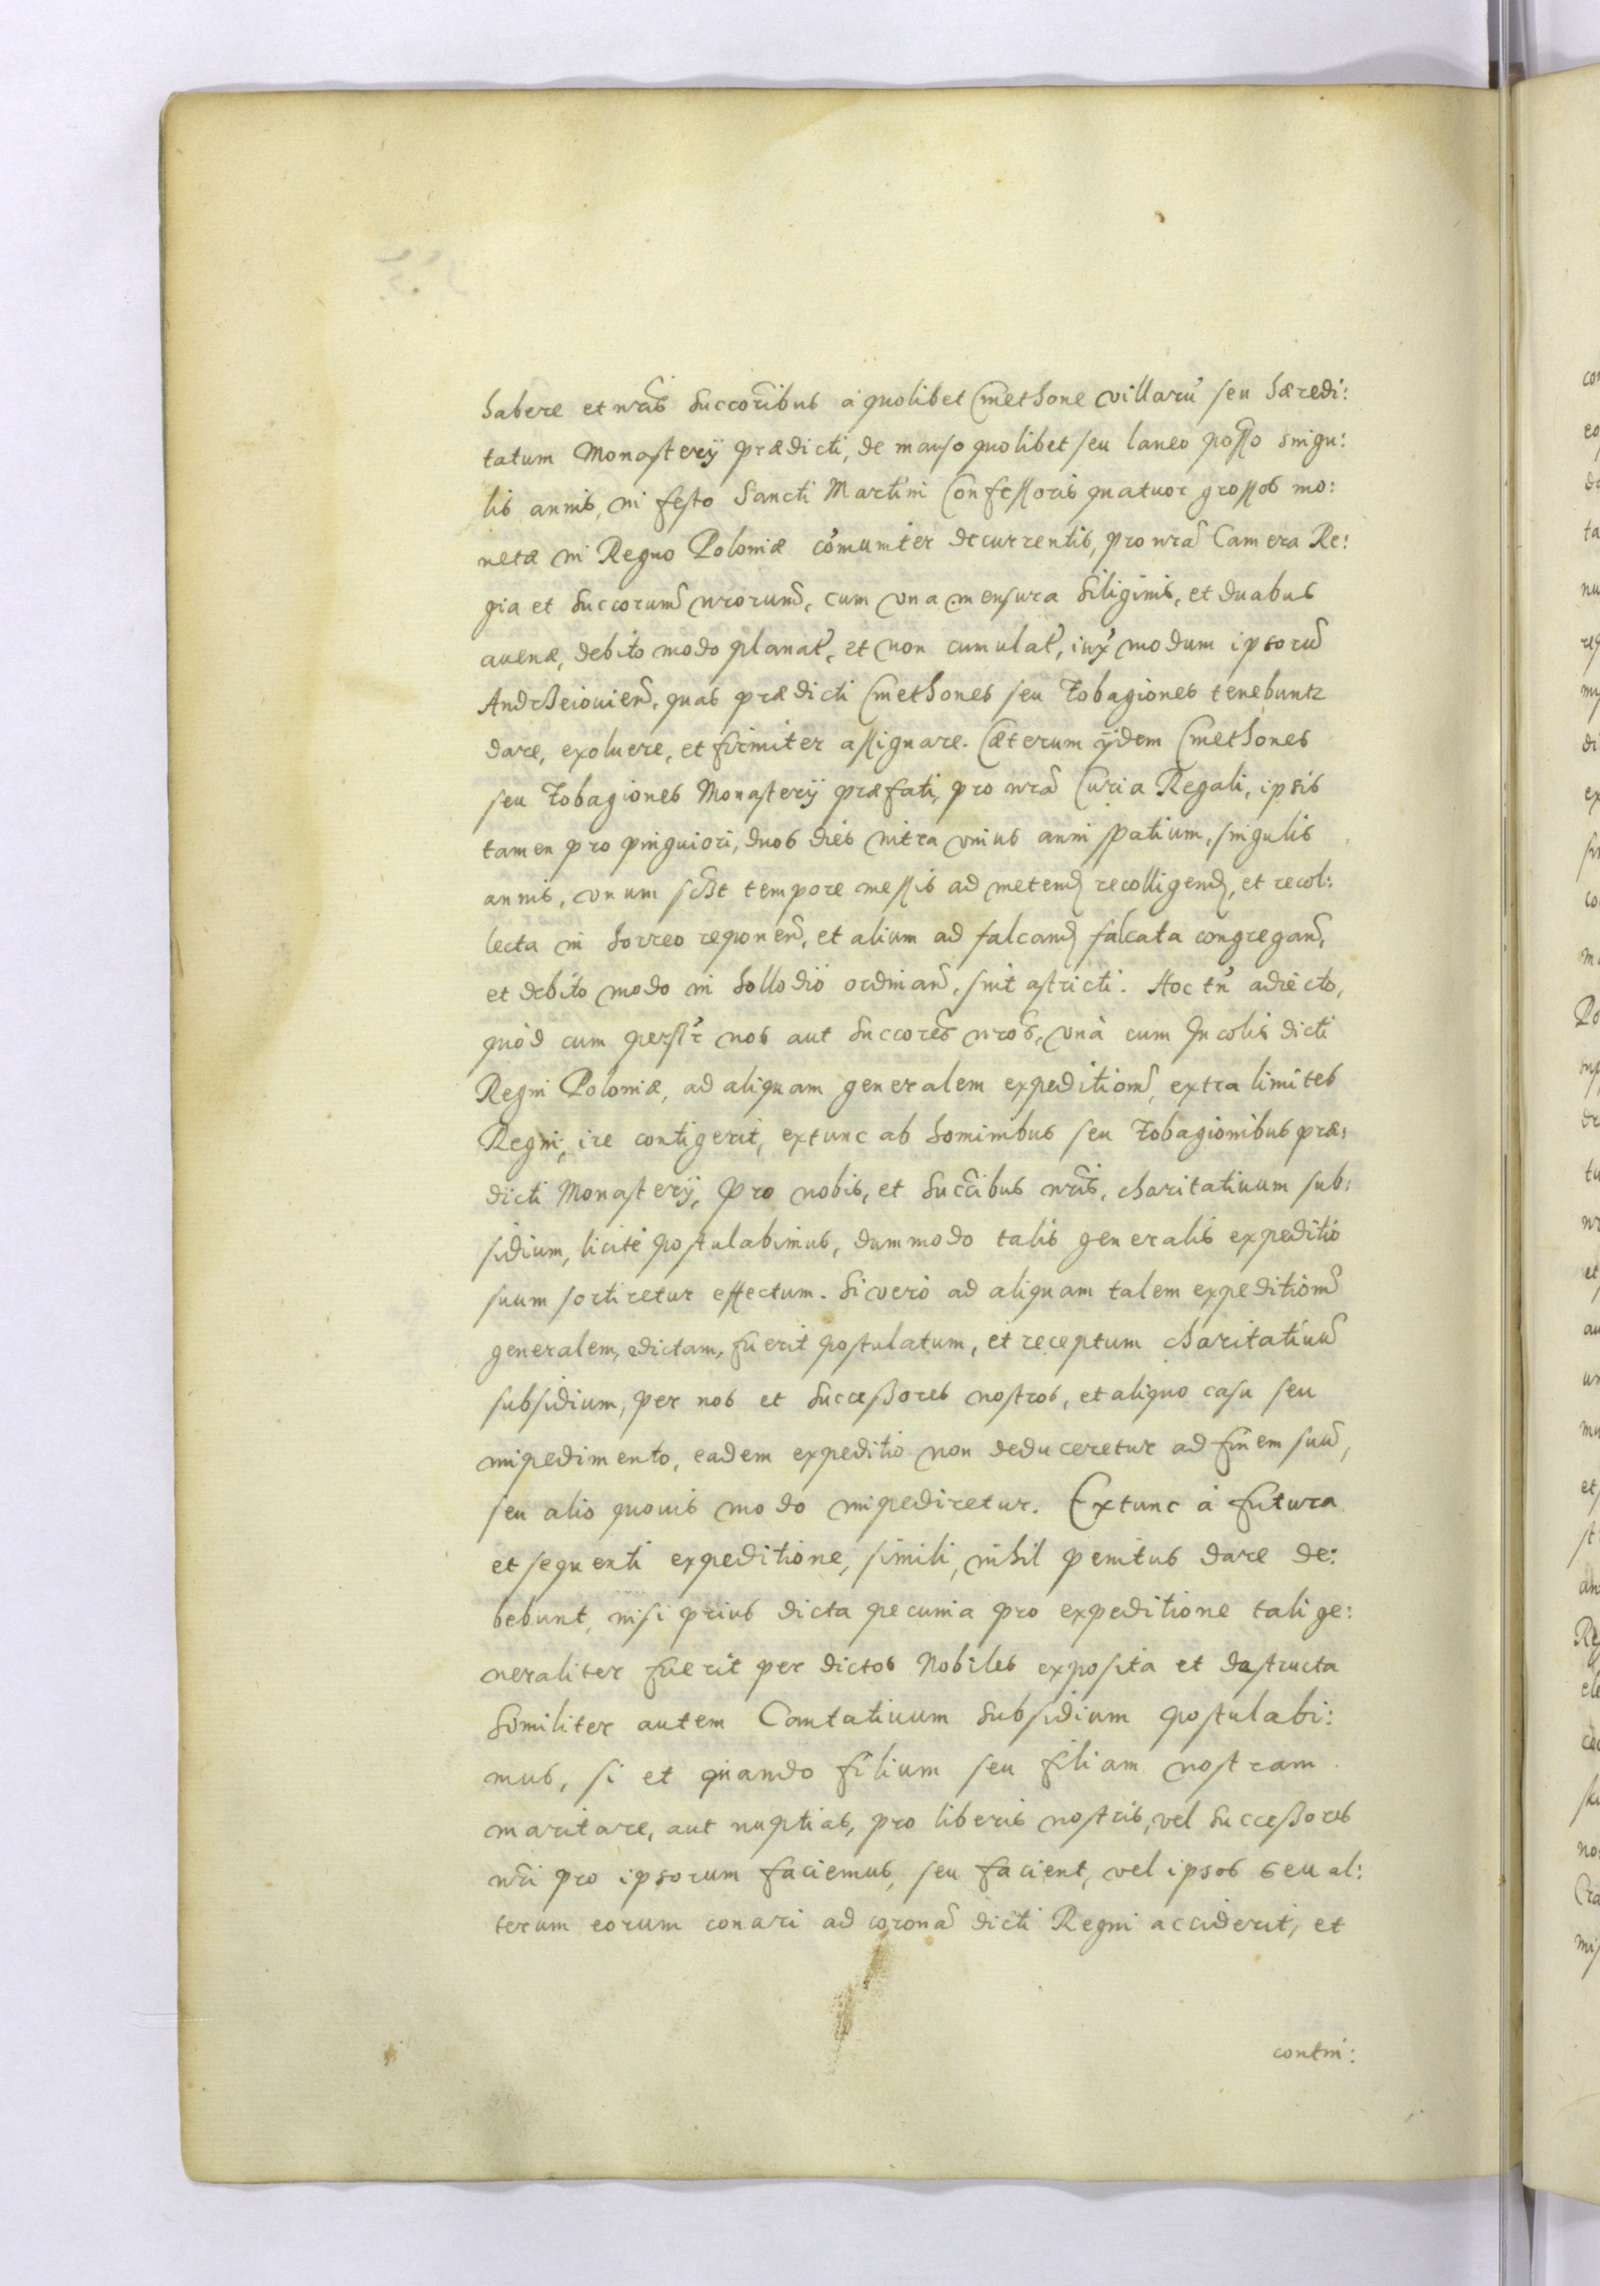 habere et nris̃ Succoribus à quolibet Cmethone villarũ seu hæredi:
tatum Monasterÿ prædicti, de manso quolibet seu laneo posso singu:
lis annis, in festo Sancti Martini Confessoris quatuor grossos mo:
netæ in Regno Poloniæ cõmuniter decurrentis, pro nrã Camera Re:
gia et Succorum̃ nrorum̃, cum vna mensura Siliginis, et duabus
auenæ, debito modo planat̃, et non cumulat̃, iux̃ modum ipsorũ
Andrzeiouieñ, quas prædicti Cmethones seu Tobagiones tenebuntz
dare, exoluere, et firmiter assignare. Cæterum ÿdem Cmethones
seu Tobagiones Monasterÿ præfati, pro nrã Curia Regali, ipsis
tamen pro pinguiori, duos dies intra vnius anni spatium, singulis
annis, vnum sclzt tempore messis ad metend̃ recolligend̃, et recol:
lecta in horreo reponeñ, et alium ad falcand̃ falcata congregañ,
et debito modo in hollodÿ ordinañ, sint astricti. Hoc tñ adiecto,
quòd cum nos aut Succores̃ nros̃, vnà cum Incolis dicti
Regni Poloniæ, ad aliquam generalem expeditiom̃, extra limites
Regni, ire contigerit, extunc ab hominibus seu Tobagionibus præ:
dicti Monasterÿ, pro nobis, et Succibus nris̃, charitatiuum sub:
sidium, licitè postulabimus, dummodo talis generalis expeditio
suum sortiretur effectum. Si verò ad aliquam talem expeditiom̃
generalem, edictam, fuerit postulatum, et receptum charitatiuũ
subsidium, per nos et Successores nostros, et aliquo casu seu
impedimento, eadem expeditio non deduceretur ad finem suũ,
seu alio quouis modo impediretur. Extunc à futura
et sequenti expeditione, simili, nihil penitus dare de:
bebunt, nisi prius dicta pecunia pro expeditione tali ge:
neraliter fuerit per dictos Nobiles exposita et dastructa
Similiter autem Caritatiuum Subsidium postulabi:
mus, si et quando filium seu filiam nostram
maritare, aut nuptias, pro liberis nostris, vel Successores
nri pro ipsorum faciemus, seu facient, vel ipsos seu al:
terum eorum conari ad coronã dicti Regni acciderit, et
contin: